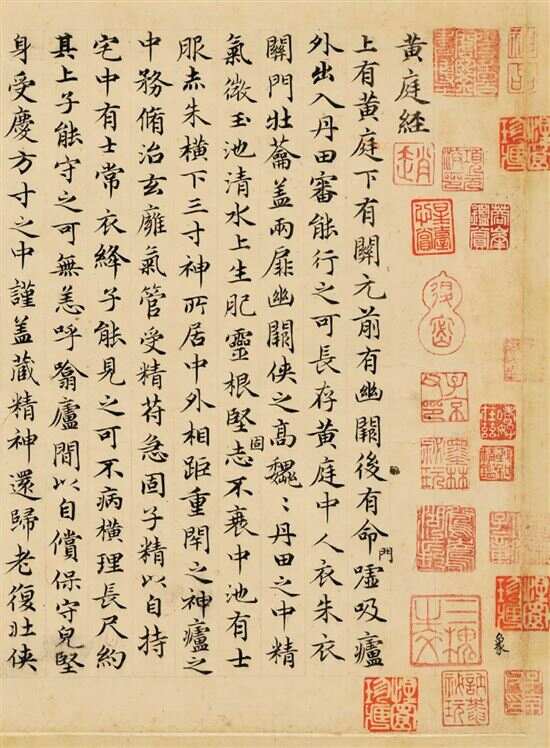 黃庭經
上有黃庭下有關元前有幽闕後有命門噓吸廬
外出入丹田審能行之可長存黃庭中人衣朱衣
關門壯蘥蓋兩扉幽闕俠之高魏〻丹田之中精
氣微玉池清水上生肥靈根堅固志不衰中池有士
服赤朱橫下三寸神所居中外相距重閇之神廬之
中務脩治玄癰氣管受精苻急固子精以自持
宅中有士常衣絳子能見之可不病橫理長尺約
其上子能守之可無恙呼噏廬間以自償保守皃堅
身受慶方寸之中謹蓋藏精神還歸老復壯俠